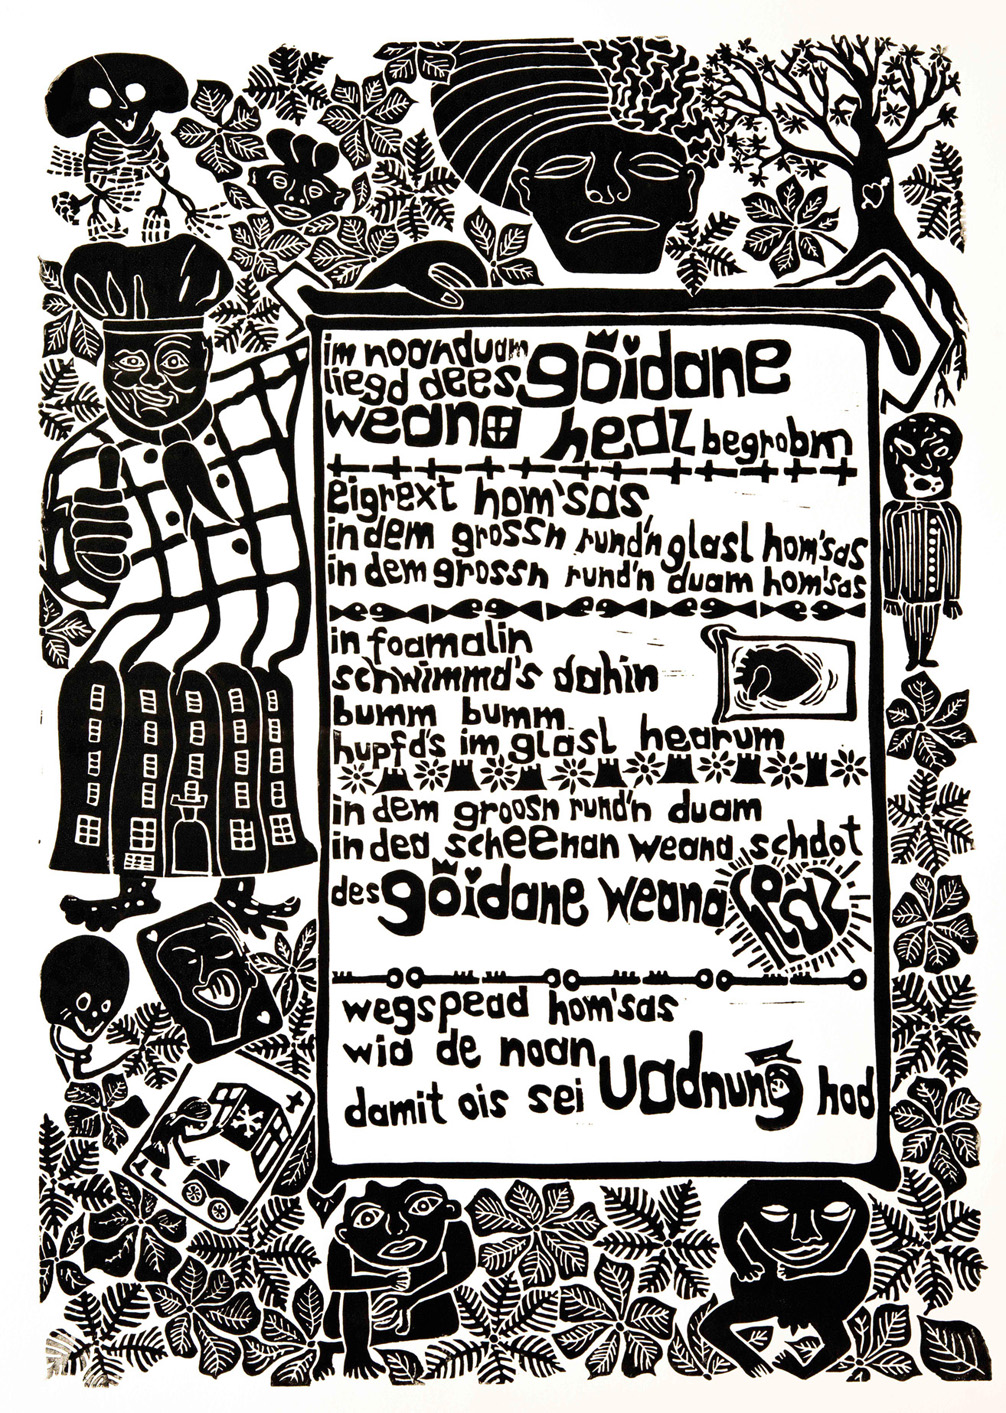 im noanduam
liegd dees göidane
weana heaz begrobm
eigrext hom'sas
in dem grossn rund'n glasl hom'sas
in dem grossn rund'n duam hom'sas
in foamalin
schwimmd's dahin
bumm bumm
hupfd's im glasl hearum
in dem groosn rund'n duam
in dea scheenan weana schdot
des göidane weana heaz
wegspead hom'sas
wia de noan
damit ois sei uadnung hod